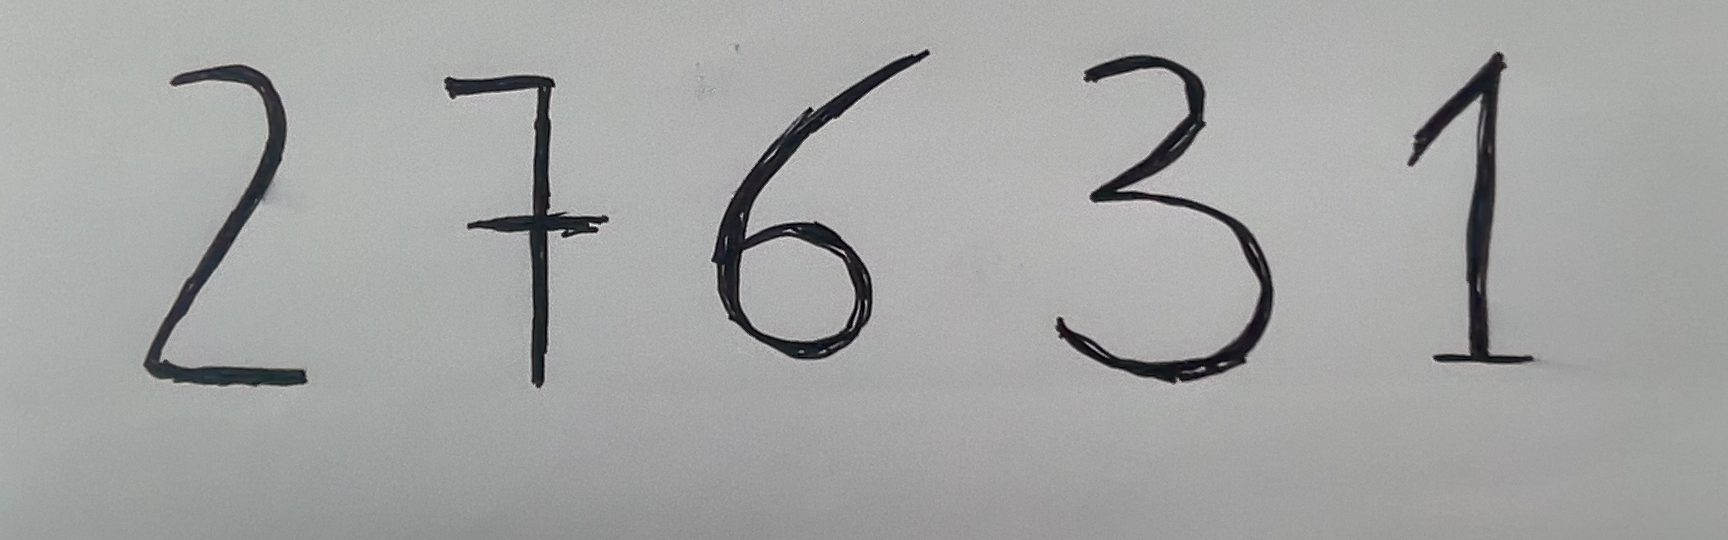 2 7 6 3 1